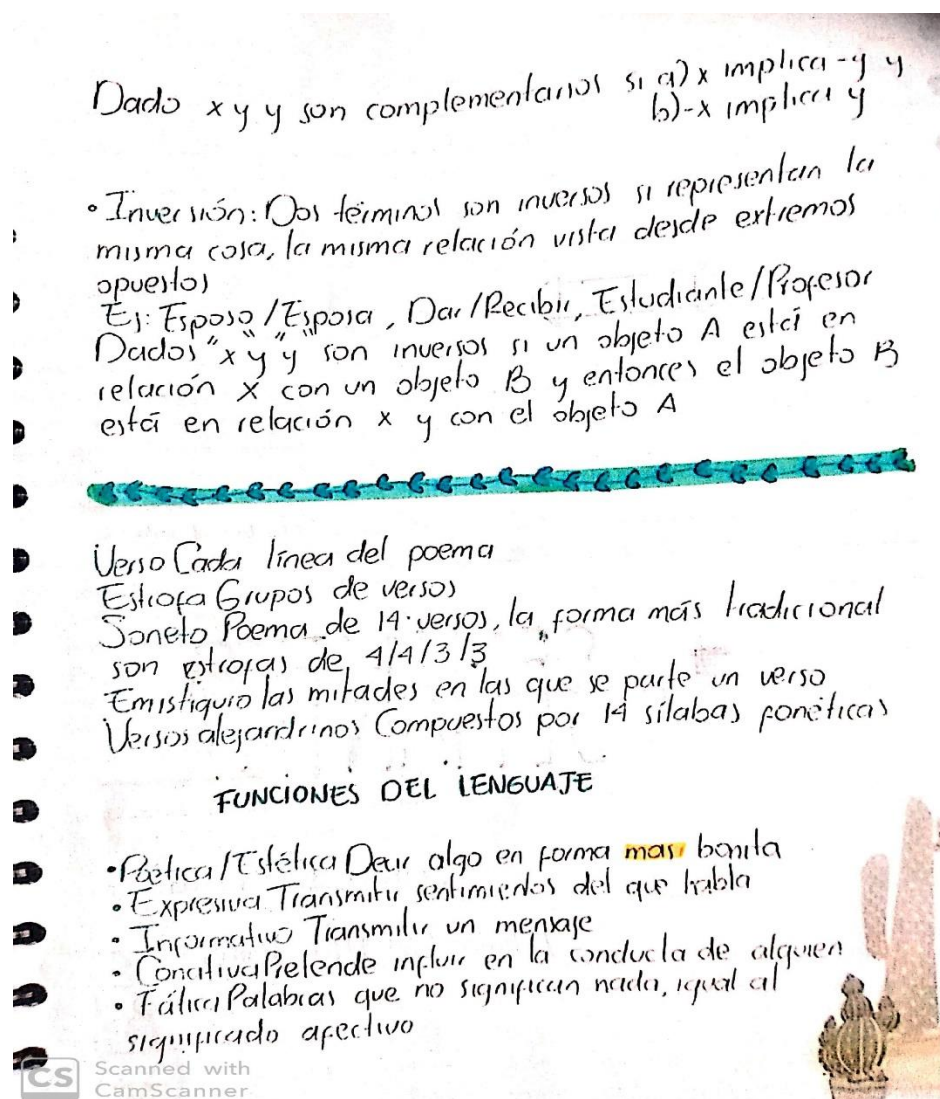 Dado x y y son complementarios si a) x implica -y y
b) -x implica y
• Inversión: Dos términos son inversos si representan la
misma cosa, la misma relación vista desde extremos
opuestos
Ej: Esposo/Esposa, Dar/Recibir, Estudiante/Profesor
Dados "x" y "y" son inversos si un objeto A está en
relación x con un objeto B y entonces el objeto B
está en relación x y con el objeto A
Verso Cada línea del poema
Estrofa Grupos de versos
Soneto Poema de 14 versos, la forma más tradicional
son estrofas de "4/4/3/3"
Emistiquio las mitades en las que se parte un verso
Versos alejandrinos Compuestos por 14 sílabas fonéticas
FUNCIONES DEL LENGUAJE
• Poética/Estética Decir algo en forma mas bonita
• Expresiva Transmitir sentimientos del que habla
• Informativo Transmitir un mensaje
• Conativa Pretende influir en la conducta de alguien
• Fática Palabras que no significan nada, igual al
significado afectivo
CS Scanned with
CamScanner